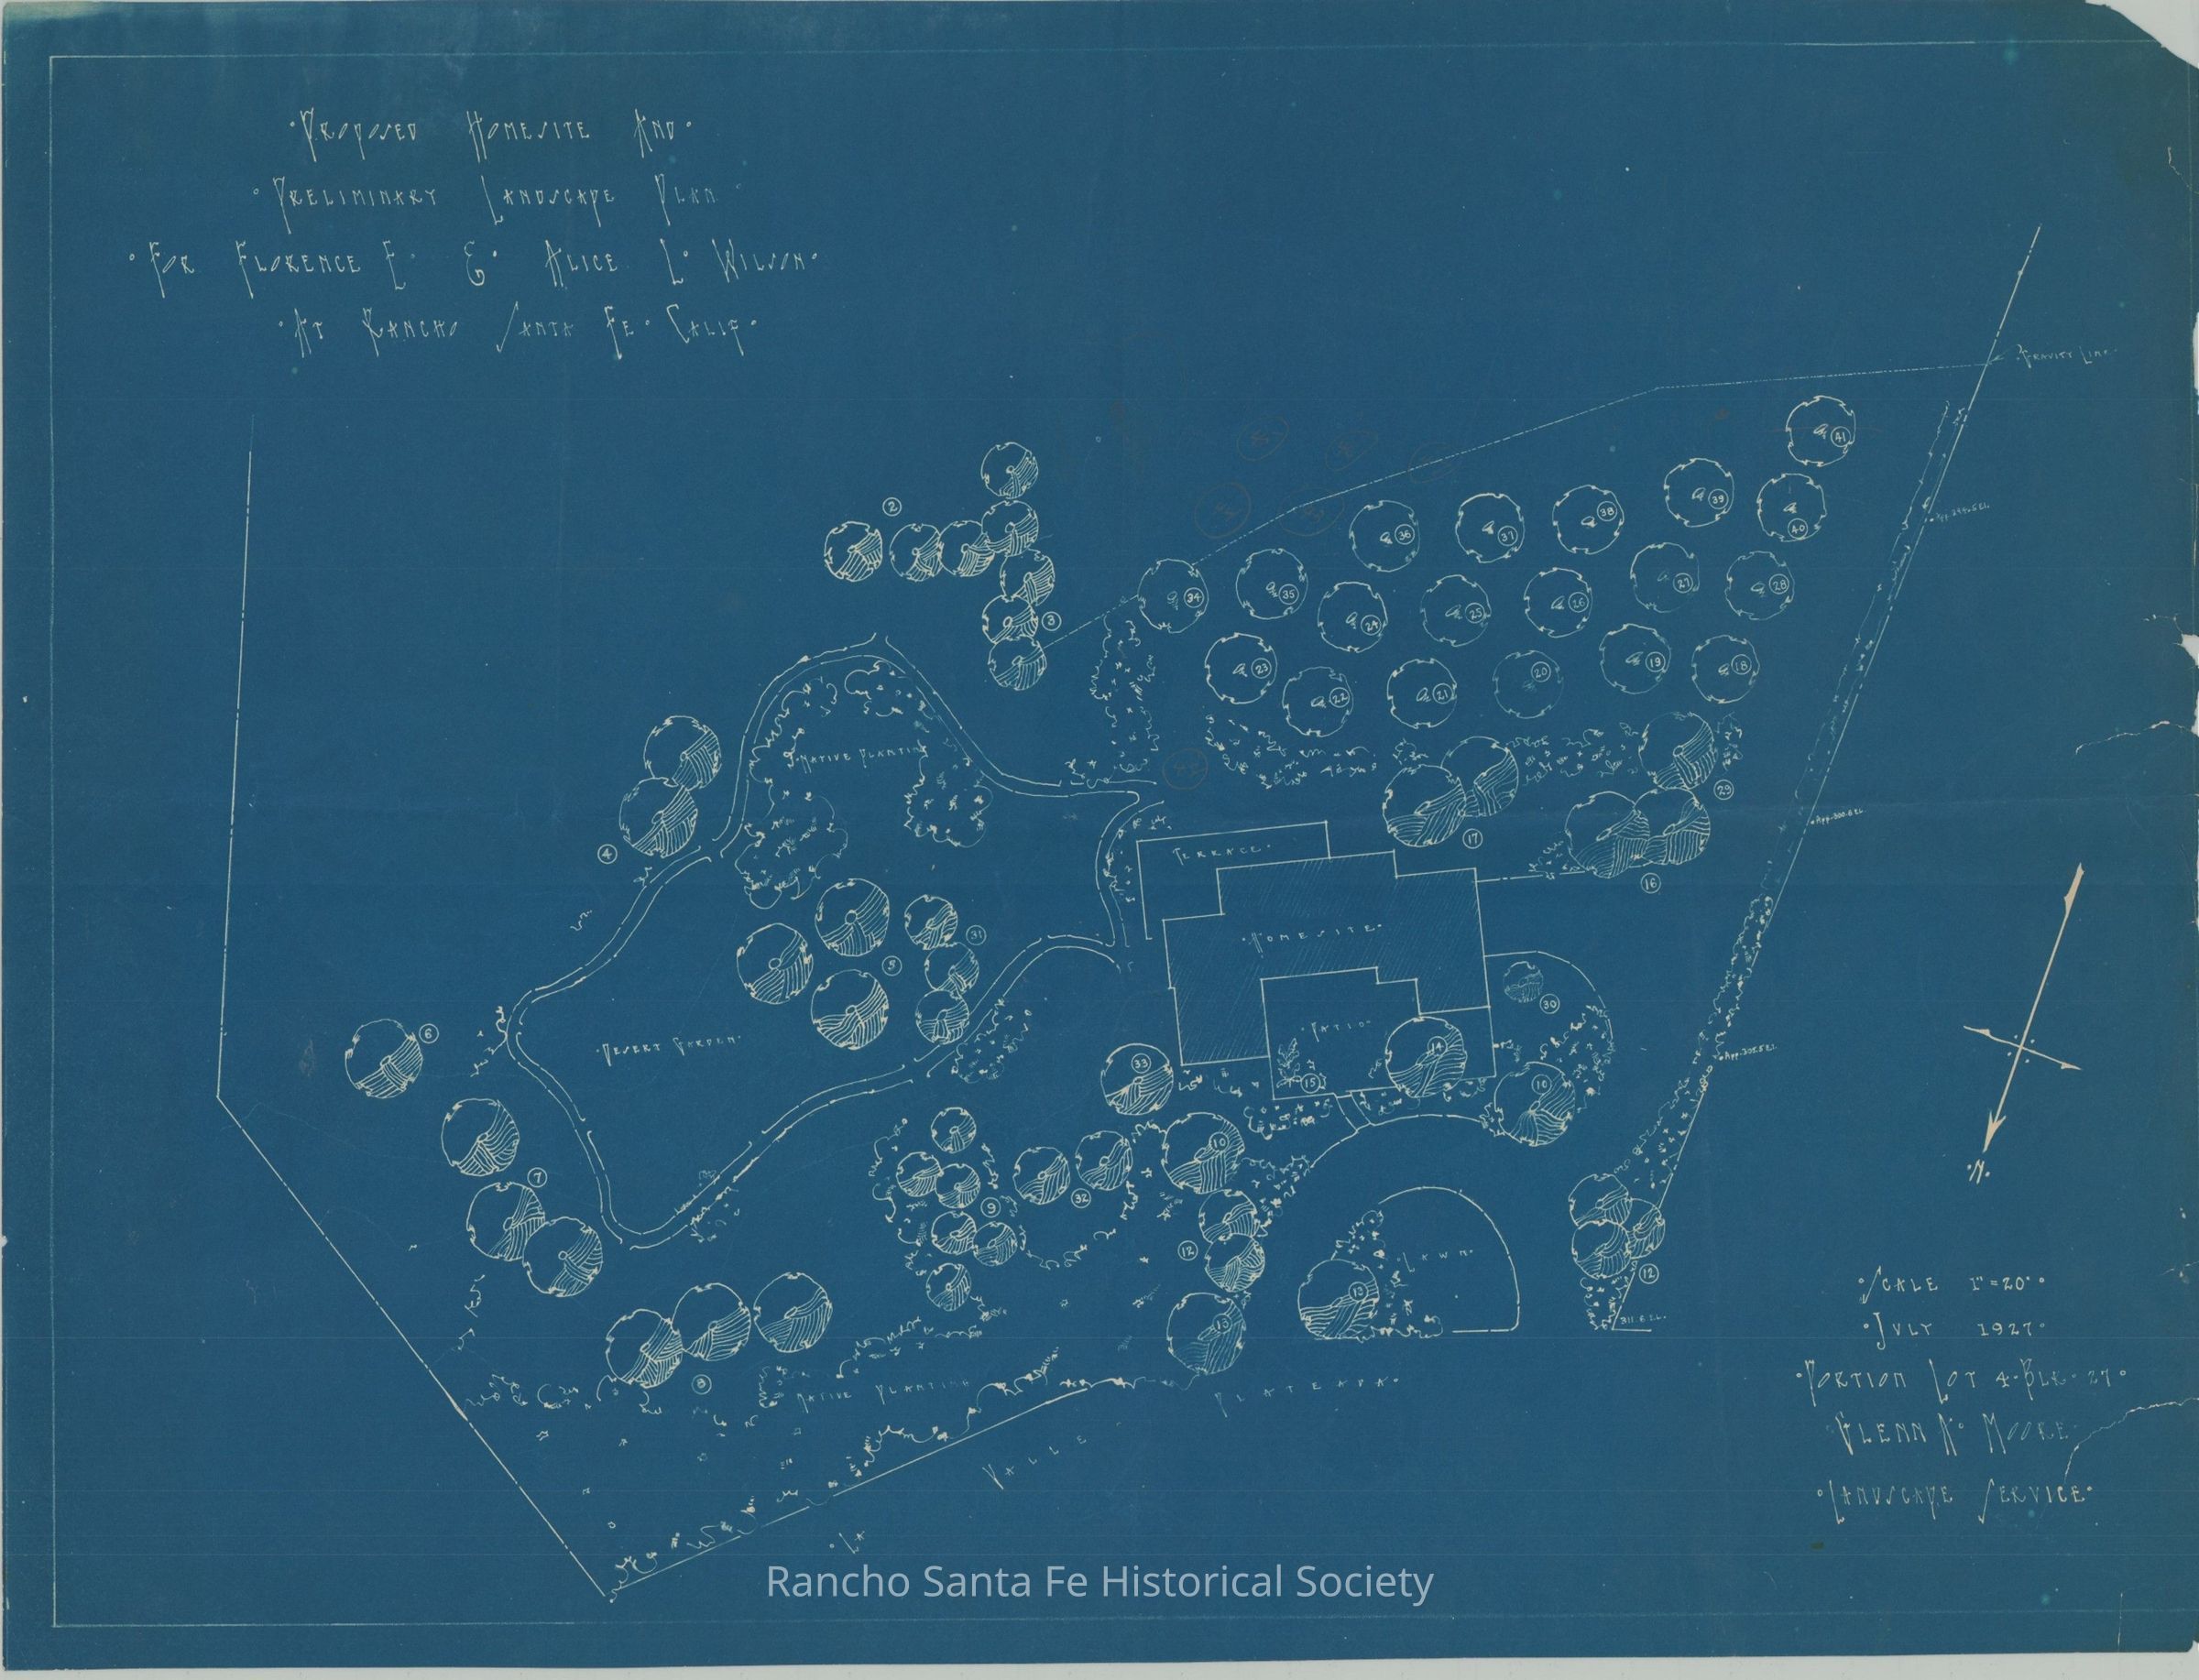 ·Proposed Homesite And·
·Preliminary Landscape Plan·
·For Florence E· & Alice L· Wilson·
·At Rancho Santa Fe· Calif·
·Gravity Line·
41
39
40
2
36
37
38
App. 299.5 El.
34
35
24
25
26
27
28
3
23
22
21
20
19
18
·Native Planting
29
4
17
App. 300.0 El.
·Terrace·
16
31
·Homesite·
5
30
·Desert Garden·
6
·Patio·
14
App. 305.5 El.
33
15
10
7
32
10
9
12
·Lawn·
12
13
13
311.6 El.
8
·Native Planting
·La Valle Plateada·
·N·
·Scale 1"=20'·
·July 1927·
·Portion Lot 4·Blk· 27·
·Glenn A· Moore·
·Landscape Service·
Rancho Santa Fe Historical Society